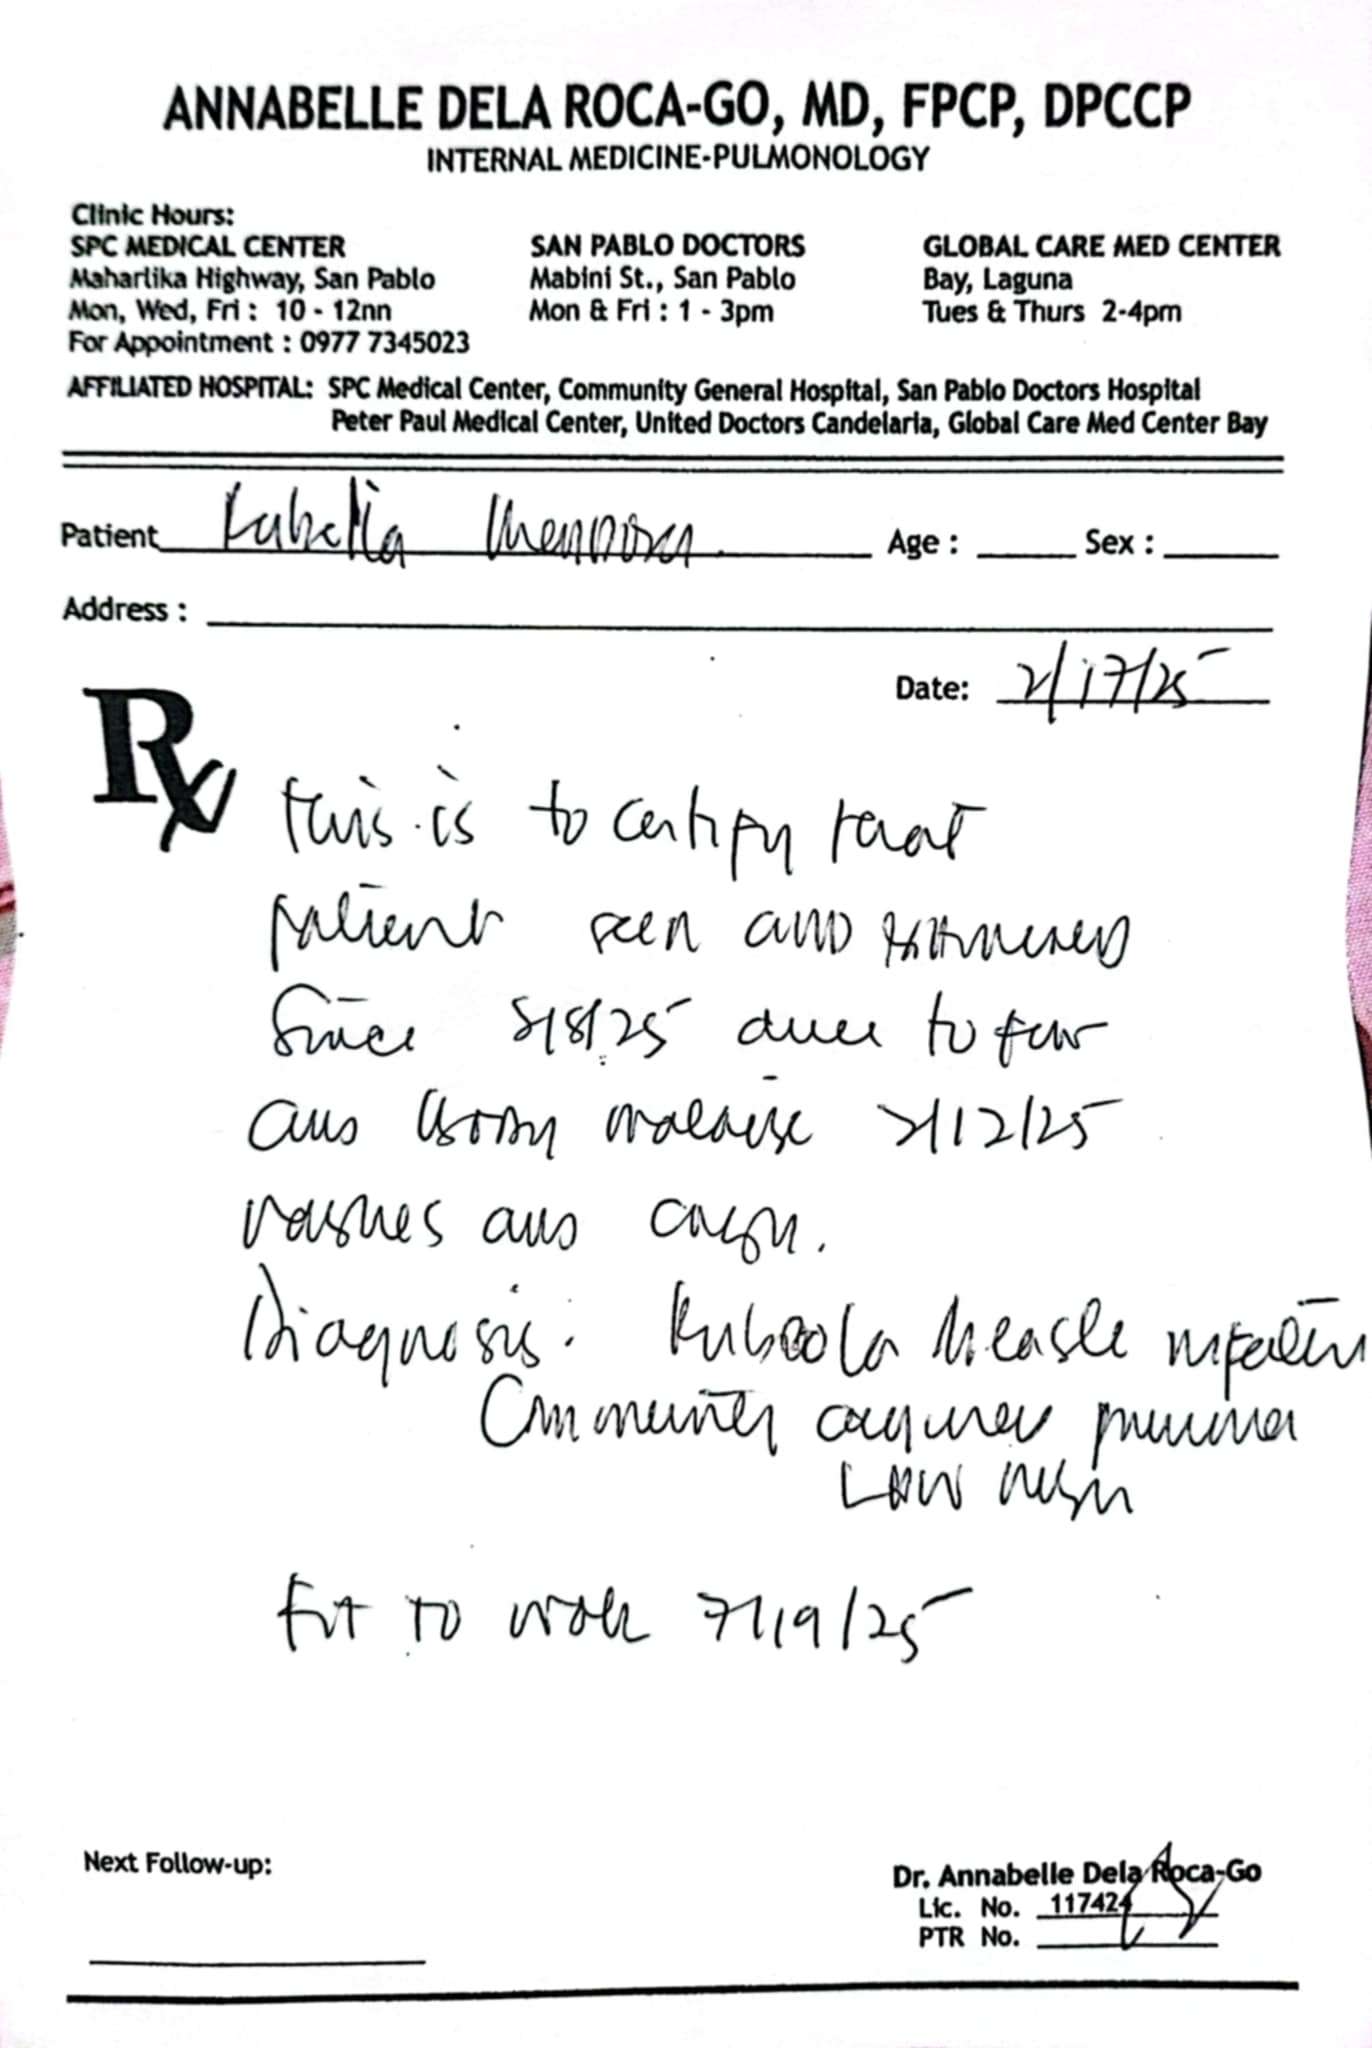 ANNABELLE DELA ROCA-GO, MD, FPCP, DPCCP
INTERNAL MEDICINE-PULMONOLOGY
Clinic Hours:
SPC MEDICAL CENTER
Maharlika Highway, San Pablo
Mon, Wed, Fri : 10 - 12nn
For Appointment : 0977 7345023
SAN PABLO DOCTORS
Mabini St., San Pablo
Mon & Fri : 1 - 3pm
GLOBAL CARE MED CENTER
Bay, Laguna
Tues & Thurs 2-4pm
AFFILIATED HOSPITAL: SPC Medical Center, Community General Hospital, San Pablo Doctors Hospital
Peter Paul Medical Center, United Doctors Candelaria, Global Care Med Center Bay
Patient Age : Sex :
Address :
Date: 2/17/25
Rx
This is to certify that
patient seen and examined
Since due to fever
and body malaise 2/12/25
rashes and cough.
Diagnosis: Rubeola Measle infection
Community acquired pneumonia
Low risk
Fit to work
Next Follow-up:
Dr. Annabelle Dela Roca-Go
Lic. No. 117424
PTR No.